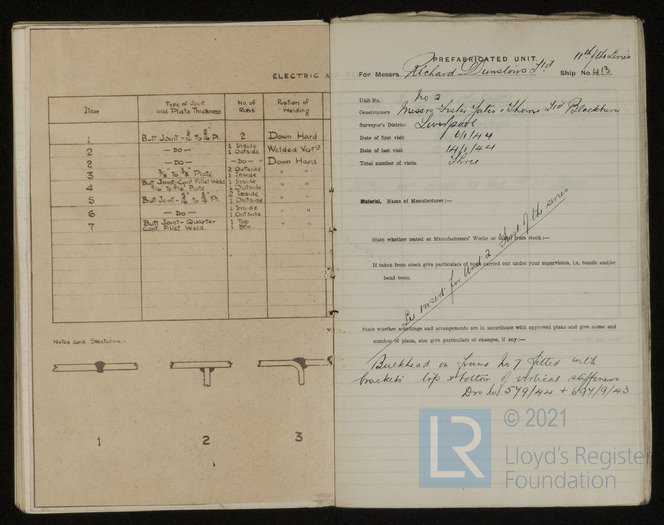 ELECTRIC A
Item
Type of Joint and Plate Thickness
No. of Runs
Position of Welding
1 Butt Joint 2 Down Hand
2 — Do — 1 Inside 1 Outside Welded Vert
2 — Do — — Do — Down Hand
3 Plate 2 Outside 1 Inside " "
4 Butt Joint-Cont Fillet Weld Plate 1 Inside 1 Outside " "
5 Butt Joint Pl. 2 Inside 1 Outside " "
6 — Do — 1 Inside 1 Outside " "
7 Butt Joint - Quarter Cont. Fillet Weld. 1 Top 1 Btm. " "
Notes and Sketches:-
1
2
3
11th of the Series
PREFABRICATED UNIT.
For Messrs. Richard Dunston's Ltd Ship No. 413
Unit No. No 2
Constructors Messrs Foster Yates & Thom Ltd Blackburn
Surveyor's District Liverpool
Date of first visit 6/1/44
Date of last visit 14/1/44
Total number of visits Three
Material. Name of Manufacturer :—
State whether tested at Manufacturers' Works or taken from stock :—
If taken from stock give particulars of tests carried out under your supervision, i.e. tensile and/or
bend tests.
See insert for Unit 2 of the series
State whether scantlings and arrangements are in accordance with approved plans and give name and
number of plans, also give particulars of changes, if any :—
Bulkhead on frame No 7 fitted with
brackets top & bottom of vertical stiffeners
Drg No 579/44 +
© 2021
LR
Lloyd's Register
Foundation